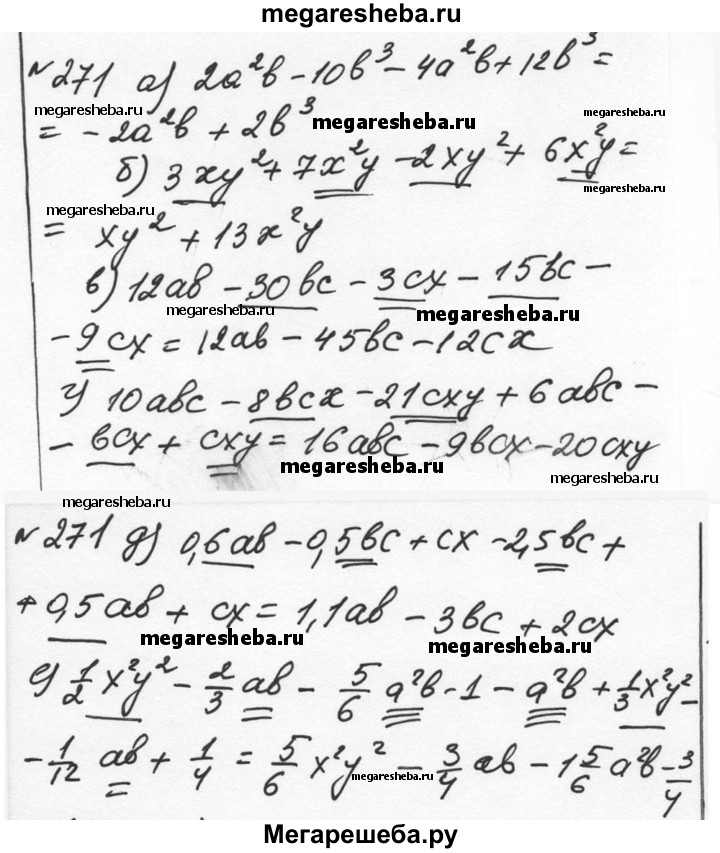 megaresheba.ru
№ 271 а) 2a²b - 10b³ - 4a²b + 12b³ =
megaresheba.ru megaresheba.ru
= - 2a²b + 2b³ megaresheba.ru
б) 3xy² + 7x²y - 2xy² + 6x²y =
megaresheba.ru megaresheba.ru
= xy² + 13x²y
в) 12ab - 30bc - 3cx - 15bc -
megaresheba.ru megaresheba.ru
- 9cx = 12ab - 45bc - 12cx
г) 10abc - 8bcx - 21cxy + 6abc -
- bcx + cxy = 16abc - 9bcx - 20cxy
megaresheba.ru
megaresheba.ru
№ 271 д) 0,6ab - 0,5bc + cx - 2,5bc +
+ 0,5ab + cx = 1,1ab - 3bc + 2cx
megaresheba.ru megaresheba.ru
е) 1/2 x²y² - 2/3 ab - 5/6 a²b - 1 - a²b + 1/3 x²y² -
- 1/12 ab + 1/4 = 5/6 x²y² - 3/4 ab - 1 5/6 a²b - 3/4
megaresheba.ru
Мегарешеба.ру